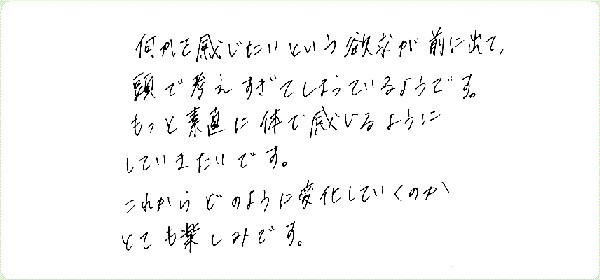 何かを感じたいという欲求が前に出て、
頭で考えすぎてしまっているようです。
もっと素直に体で感じるように
していきたいです。
これからどのように変化していくのか
とても楽しみです。